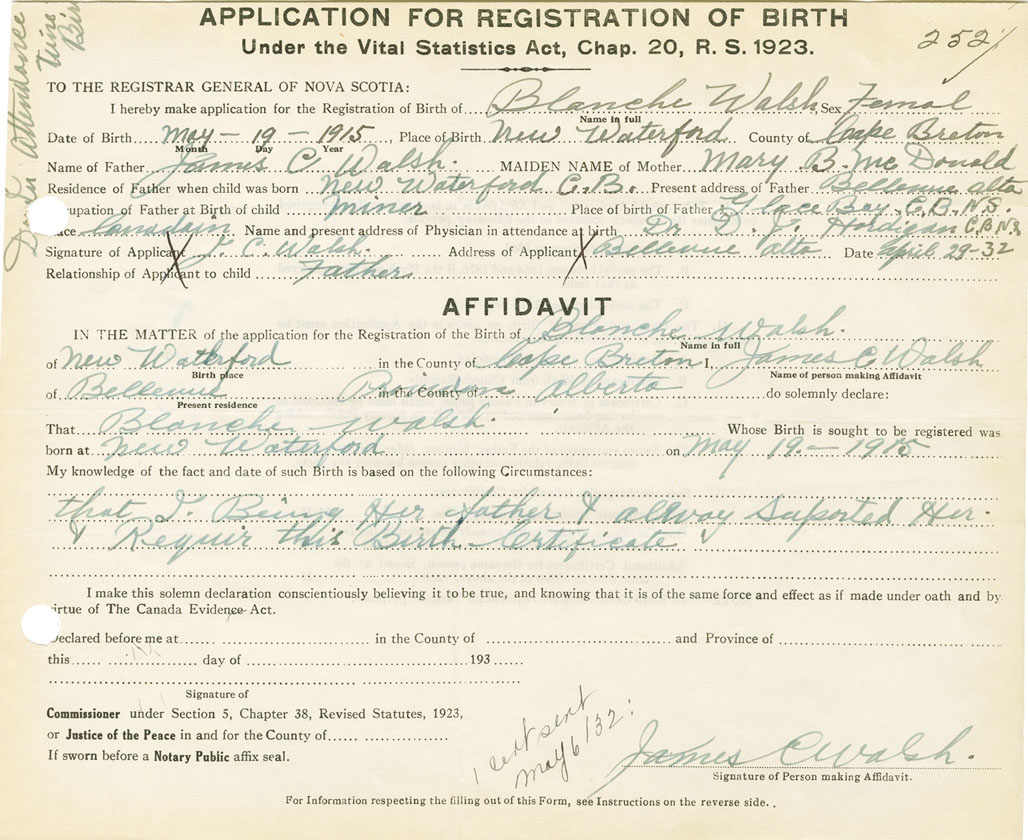 APPLICATION FOR REGISTRATION OF BIRTH
Under the Vital Statistics Act, Chap. 20, R. S. 1923.
252
in Attendance
Twins
TO THE REGISTRAR GENERAL OF NOVA SCOTIA:
I hereby make application for the Registration of Birth of Blanche Walsh Sex Femal
Name in full
Date of Birth May - 19 - 1915, Place of Birth New Waterford County of Cape Breton
Month Day Year
Name of Father James C Walsh. MAIDEN NAME of Mother Mary B. Mc Donald
Residence of Father when child was born New Waterford C.B. Present address of Father Bellevue alta
cupation of Father at Birth of child miner Place of birth of Father Glace Bay, C.B. N.S.
ace Canadain Name and present address of Physician in attendance at birth Dr D. J. C.B N.S
Signature of Applicant X J. C. Walsh. Address of Applicant X Bellevue alta Date April 29-32
Relationship of Applicant to child Father
AFFIDAVIT
IN THE MATTER of the application for the Registration of the Birth of Blanche Walsh.
Name in full
of New Waterford in the County of Cape Breton I, James C Walsh
Birth place Name of person making Affidavit
of Bellevue in the County of Alberta do solemnly declare:
Present residence
That Blanche Walsh. Whose Birth is sought to be registered was
born at New Waterford on May 19.- 1915
My knowledge of the fact and date of such Birth is based on the following Circumstances:
that I Being Her father & allway Suported Her.
& Requir this Birth Certificate
I make this solemn declaration conscientiously believing it to be true, and knowing that it is of the same force and effect as if made under oath and by
irtue of The Canada Evidence Act.
Declared before me at in the County of and Province of
this day of 193
Signature of
Commissioner under Section 5, Chapter 38, Revised Statutes, 1923,
or Justice of the Peace in and for the County of
If sworn before a Notary Public affix seal.
1 cert sent
May 6/32:
James C Walsh.
Signature of Person making Affidavit.
For Information respecting the filling out of this Form, see Instructions on the reverse side.